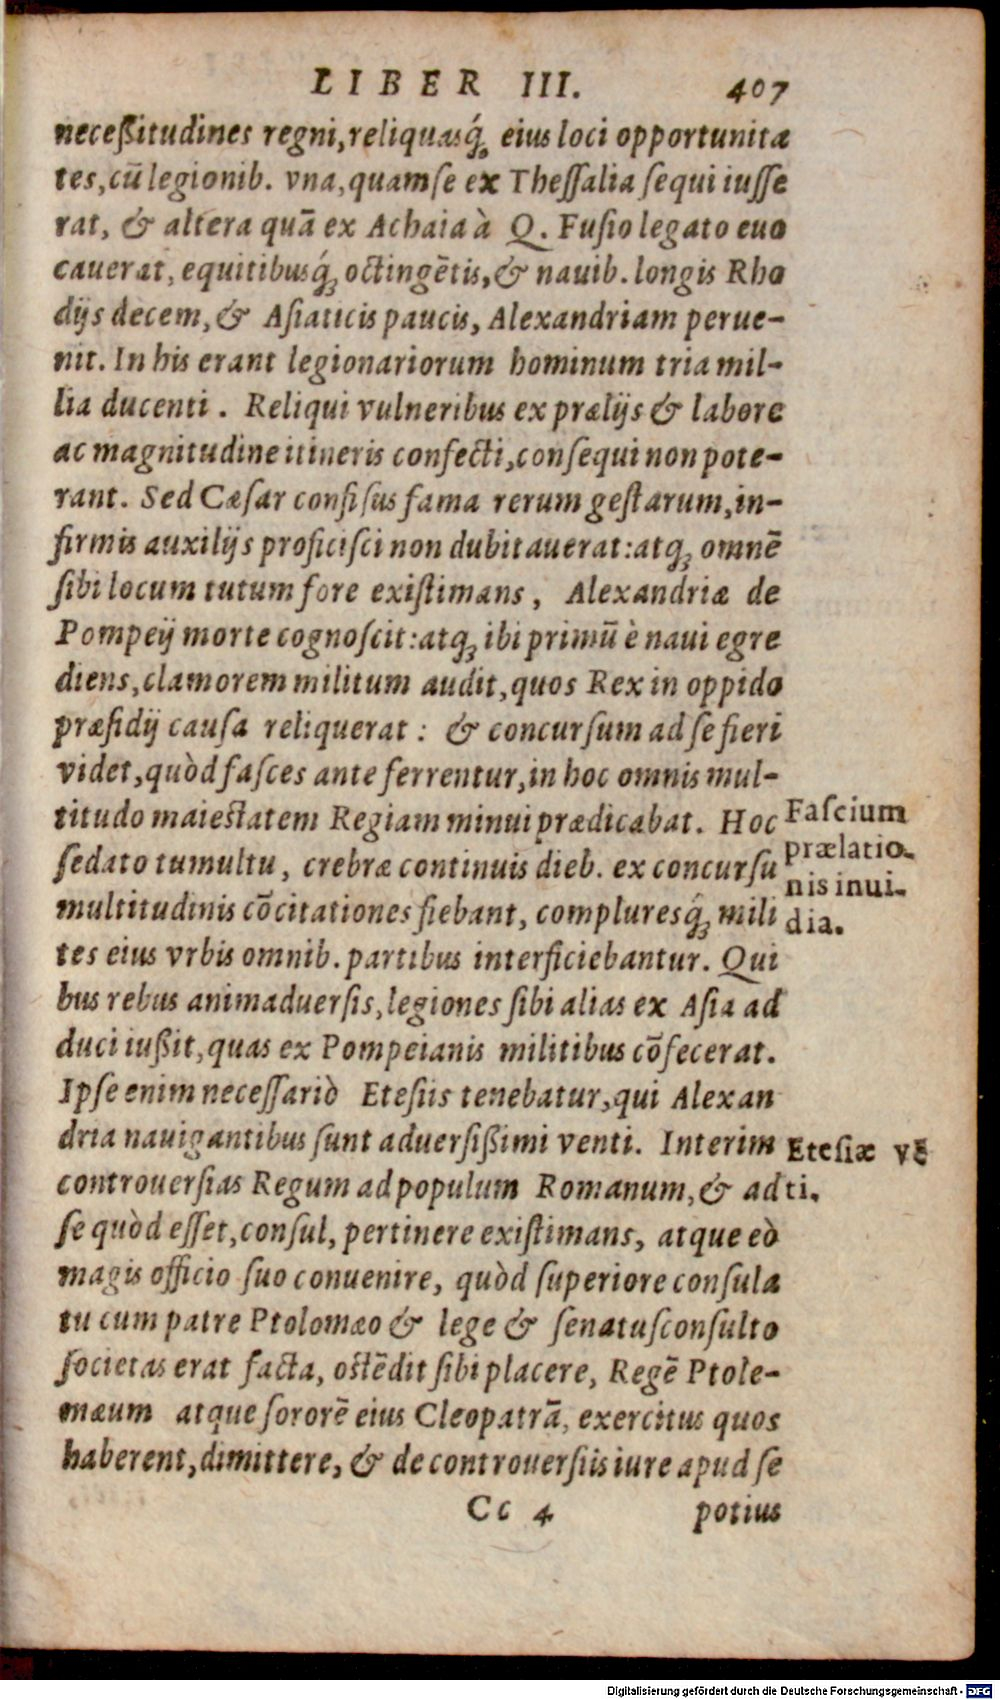 LIBER III. 407
neceßitudines regni, reliquasq́; eius loci opportunita
tes, cū legionib. vna, quam se ex Thessalia sequi iusse
rat, & altera quā ex Achaia à Q. Fusio legato euo
cauerat, equitibusq́; octingētis, & nauib. longis Rho
dijs decem, & Asiaticis paucis, Alexandriam perue-
nit. In his erant legionariorum hominum tria mil-
lia ducenti. Reliqui vulneribus ex prælijs & labore
ac magnitudine itineris confecti, consequi non pote-
rant. Sed Cæsar confisus fama rerum gestarum, in-
firmis auxilijs proficisci non dubitauerat: atq; omnē
sibi locum tutum fore existimans, Alexandriæ de
Pompeij morte cognoscit: atq; ibi primū è naui egre
diens, clamorem militum audit, quos Rex in oppido
præsidij causa reliquerat: & concursum ad se fieri
videt, quòd fasces anteferrentur, in hoc omnis mul-
titudo maiestatem Regiam minui prædicabat. Hoc
sedato tumultu, crebræ continuis dieb. ex concursu
multitudinis cōcitationes fiebant, compluresq́; mili
tes eius vrbis omnib. partibus interficiebantur. Qui
bus rebus animaduersis, legiones sibi alias ex Asia ad
duci iußit, quas ex Pompeianis militibus cōfecerat.
Ipse enim necessariò Etesiis tenebatur, qui Alexan
dria nauigantibus sunt aduersißimi venti. Interim
controuersias Regum ad populum Romanum, & ad
se quòd esset, consul, pertinere existimans, atque eò
magis officio suo conuenire, quòd superiore consula
tu cum patre Ptolomæo & lege & senatusconsulto
societas erat facta, ostēdit sibi placere, Regē Ptole-
mæum atque sororē eius Cleopatrā, exercitus quos
haberent, dimittere, & de controuersiis iure apud se
Cc 4 potius
Fascium
prælatio-
nis inui-
dia.
Etesiæ vē
ti.
Digitalisierung gefördert durch die Deutsche Forschungsgemeinschaft - DFG